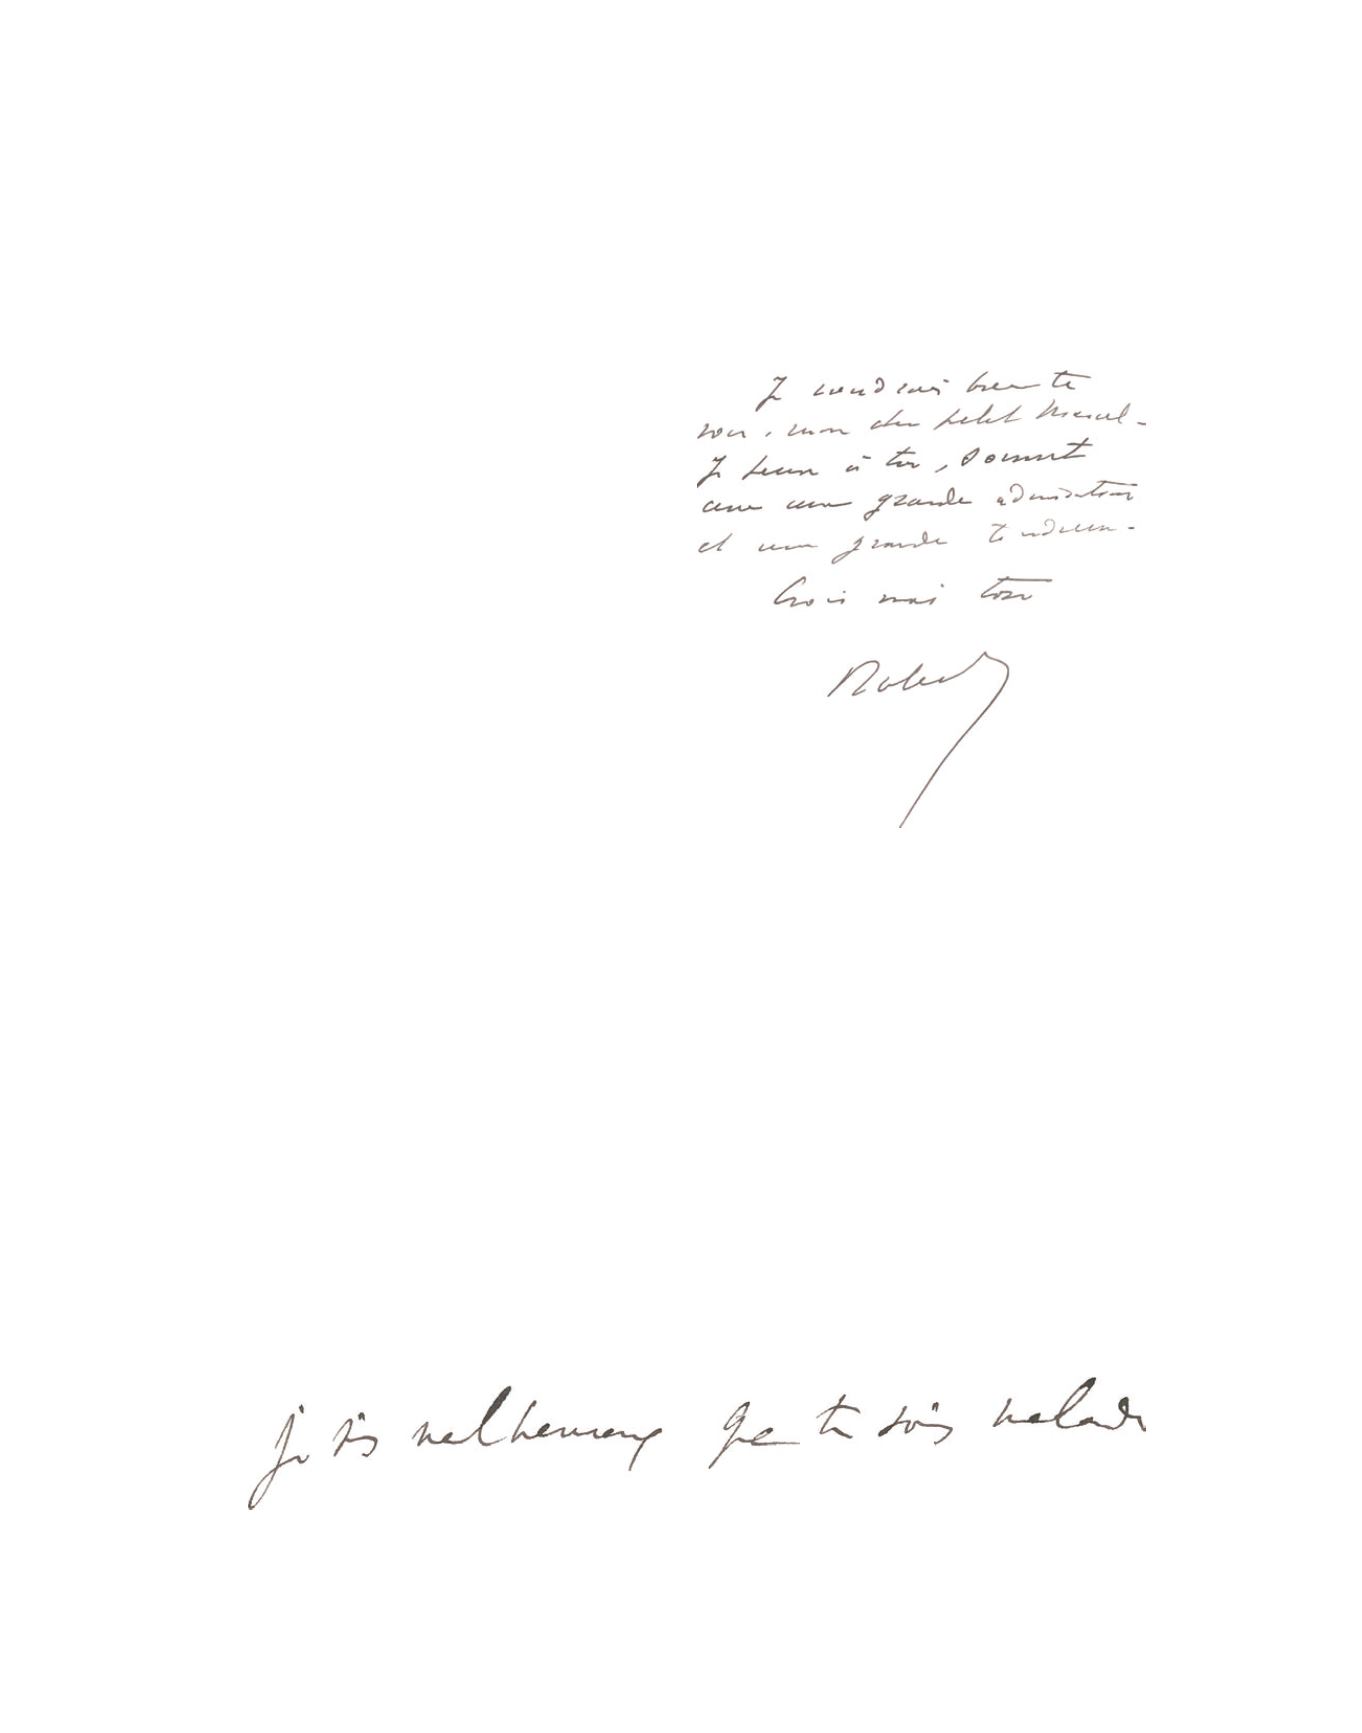 Je voudrais bien te
voir, mon cher petit Marcel -
Je pense à toi, souvent
avec une grande admiration
et une grande tendresse -
Crois moi ton
Robert
je suis malheureux que tu sois malade